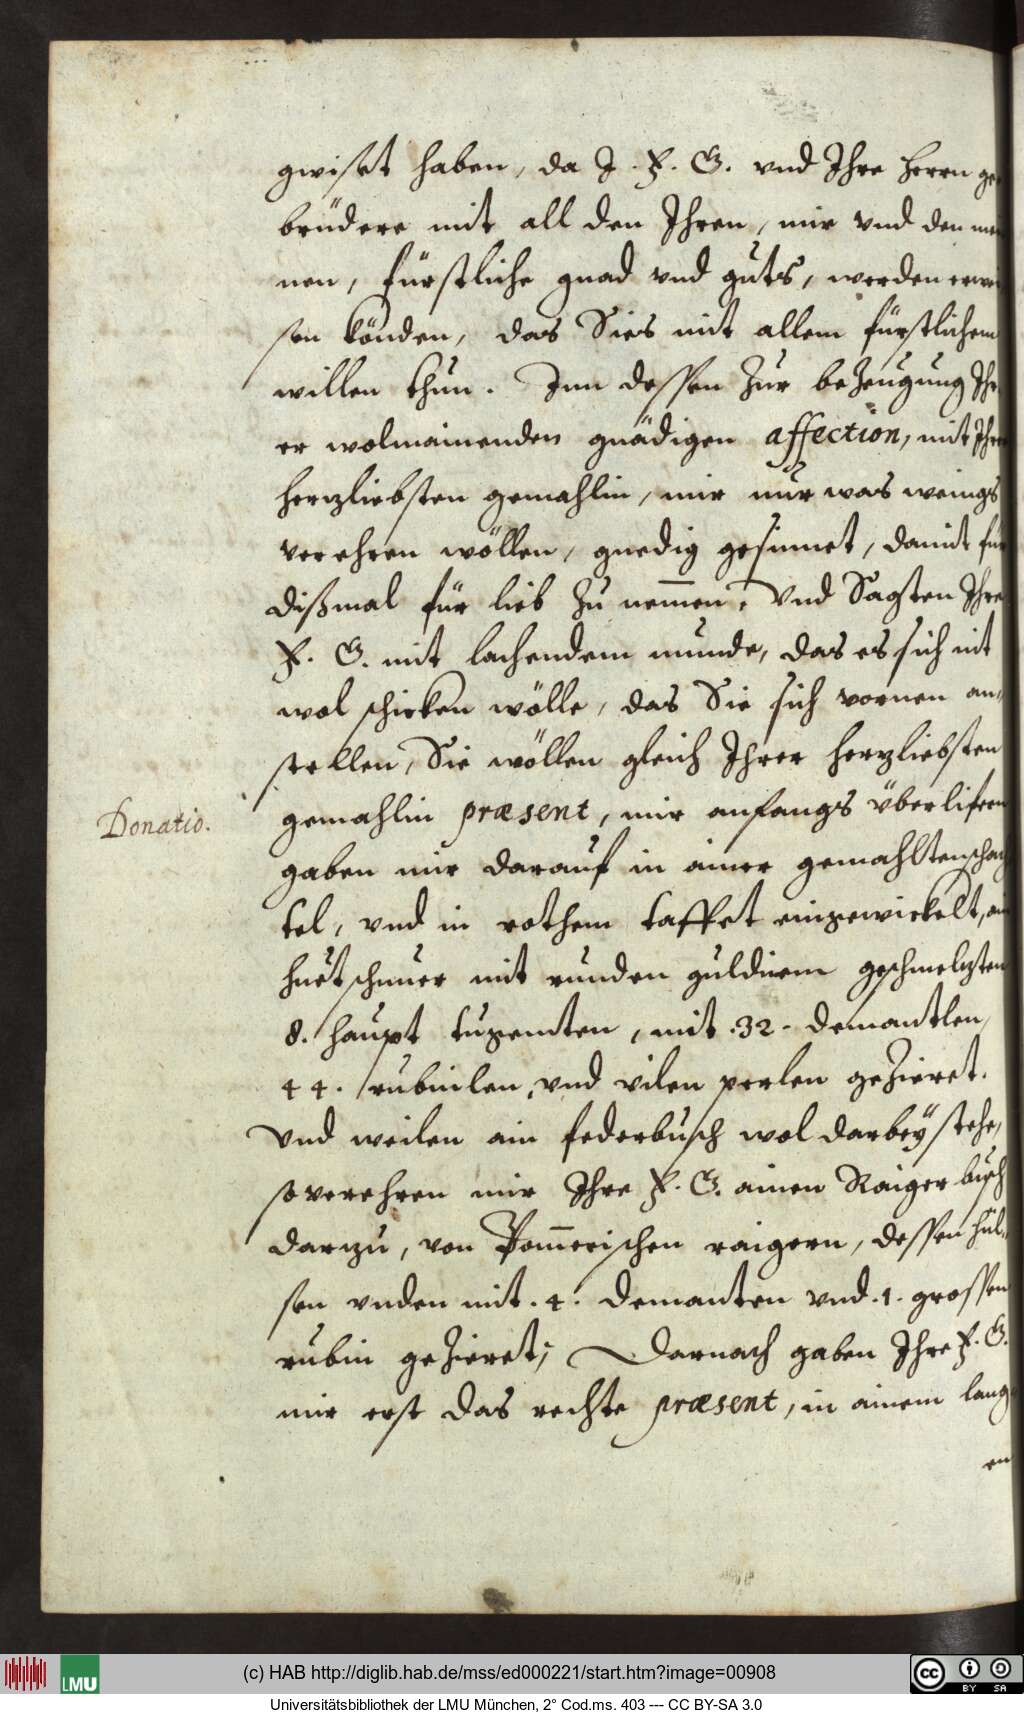 gwißt haben, da I. F. G. vnd Ihre herrn ge
brüdere mit all den Ihren, mir vnd den mei
nen, fürstliche gnad vnd guts, werden erwei
sen könden, das Sies mit allem fürstlichem
willen thun. Inn dessen zur bezeugung Ihr
er wolmainenden gnädigen affection, mit Ihrer
herzliebsten gemahlin, mir nur was weings
verehren wöllen, gnedig gesinnet, damit für
dißmal für lieb zu nemmen, Vnd Sagsten Ihre
F. G. mit lachendem munde, das es sich nit
wol schicken wölle, das Sie sich vornen an-
stellen, Sie wöllen gleich Ihrer herzliebsten
Donatio.
gemahlin præsent, mir anfangs überlifren
gaben mir darauf in ainer gemahlten schach
tel, vnd in rothem taffet eingewickelt, ein
huetschnuer mit runden guldinem geschmelzten
8. haupt tuzemten, mit .32. demantlen,
44. rubinlen, vnd vilen perlen gezieret.
Vnd weilen ain federbusch wol darbeÿ stehe,
so verehren mir Ihre F. G. ainen Raiger busch
darzu, von Pom̅erischen raigern, dessen hül-
sen vnden mit .4. demanten vnd .1. grossen
rubin gezieret; Darnach gaben Ihre F. G.
mir erst das rechte præsent, in ainem lang
en
(c) HAB http://diglib.hab.de/mss/ed000221/start.htm?image=00908
LMU
cc BY SA
Universitätsbibliothek der LMU München, 2° Cod.ms. 403 --- CC BY-SA 3.0